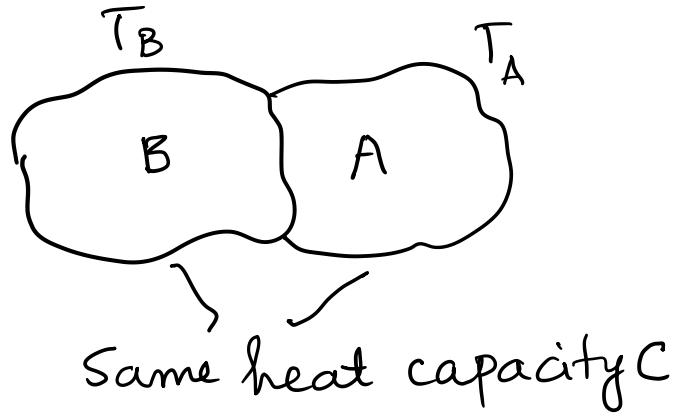 T_B
T_A
B
A
Same heat capacity C